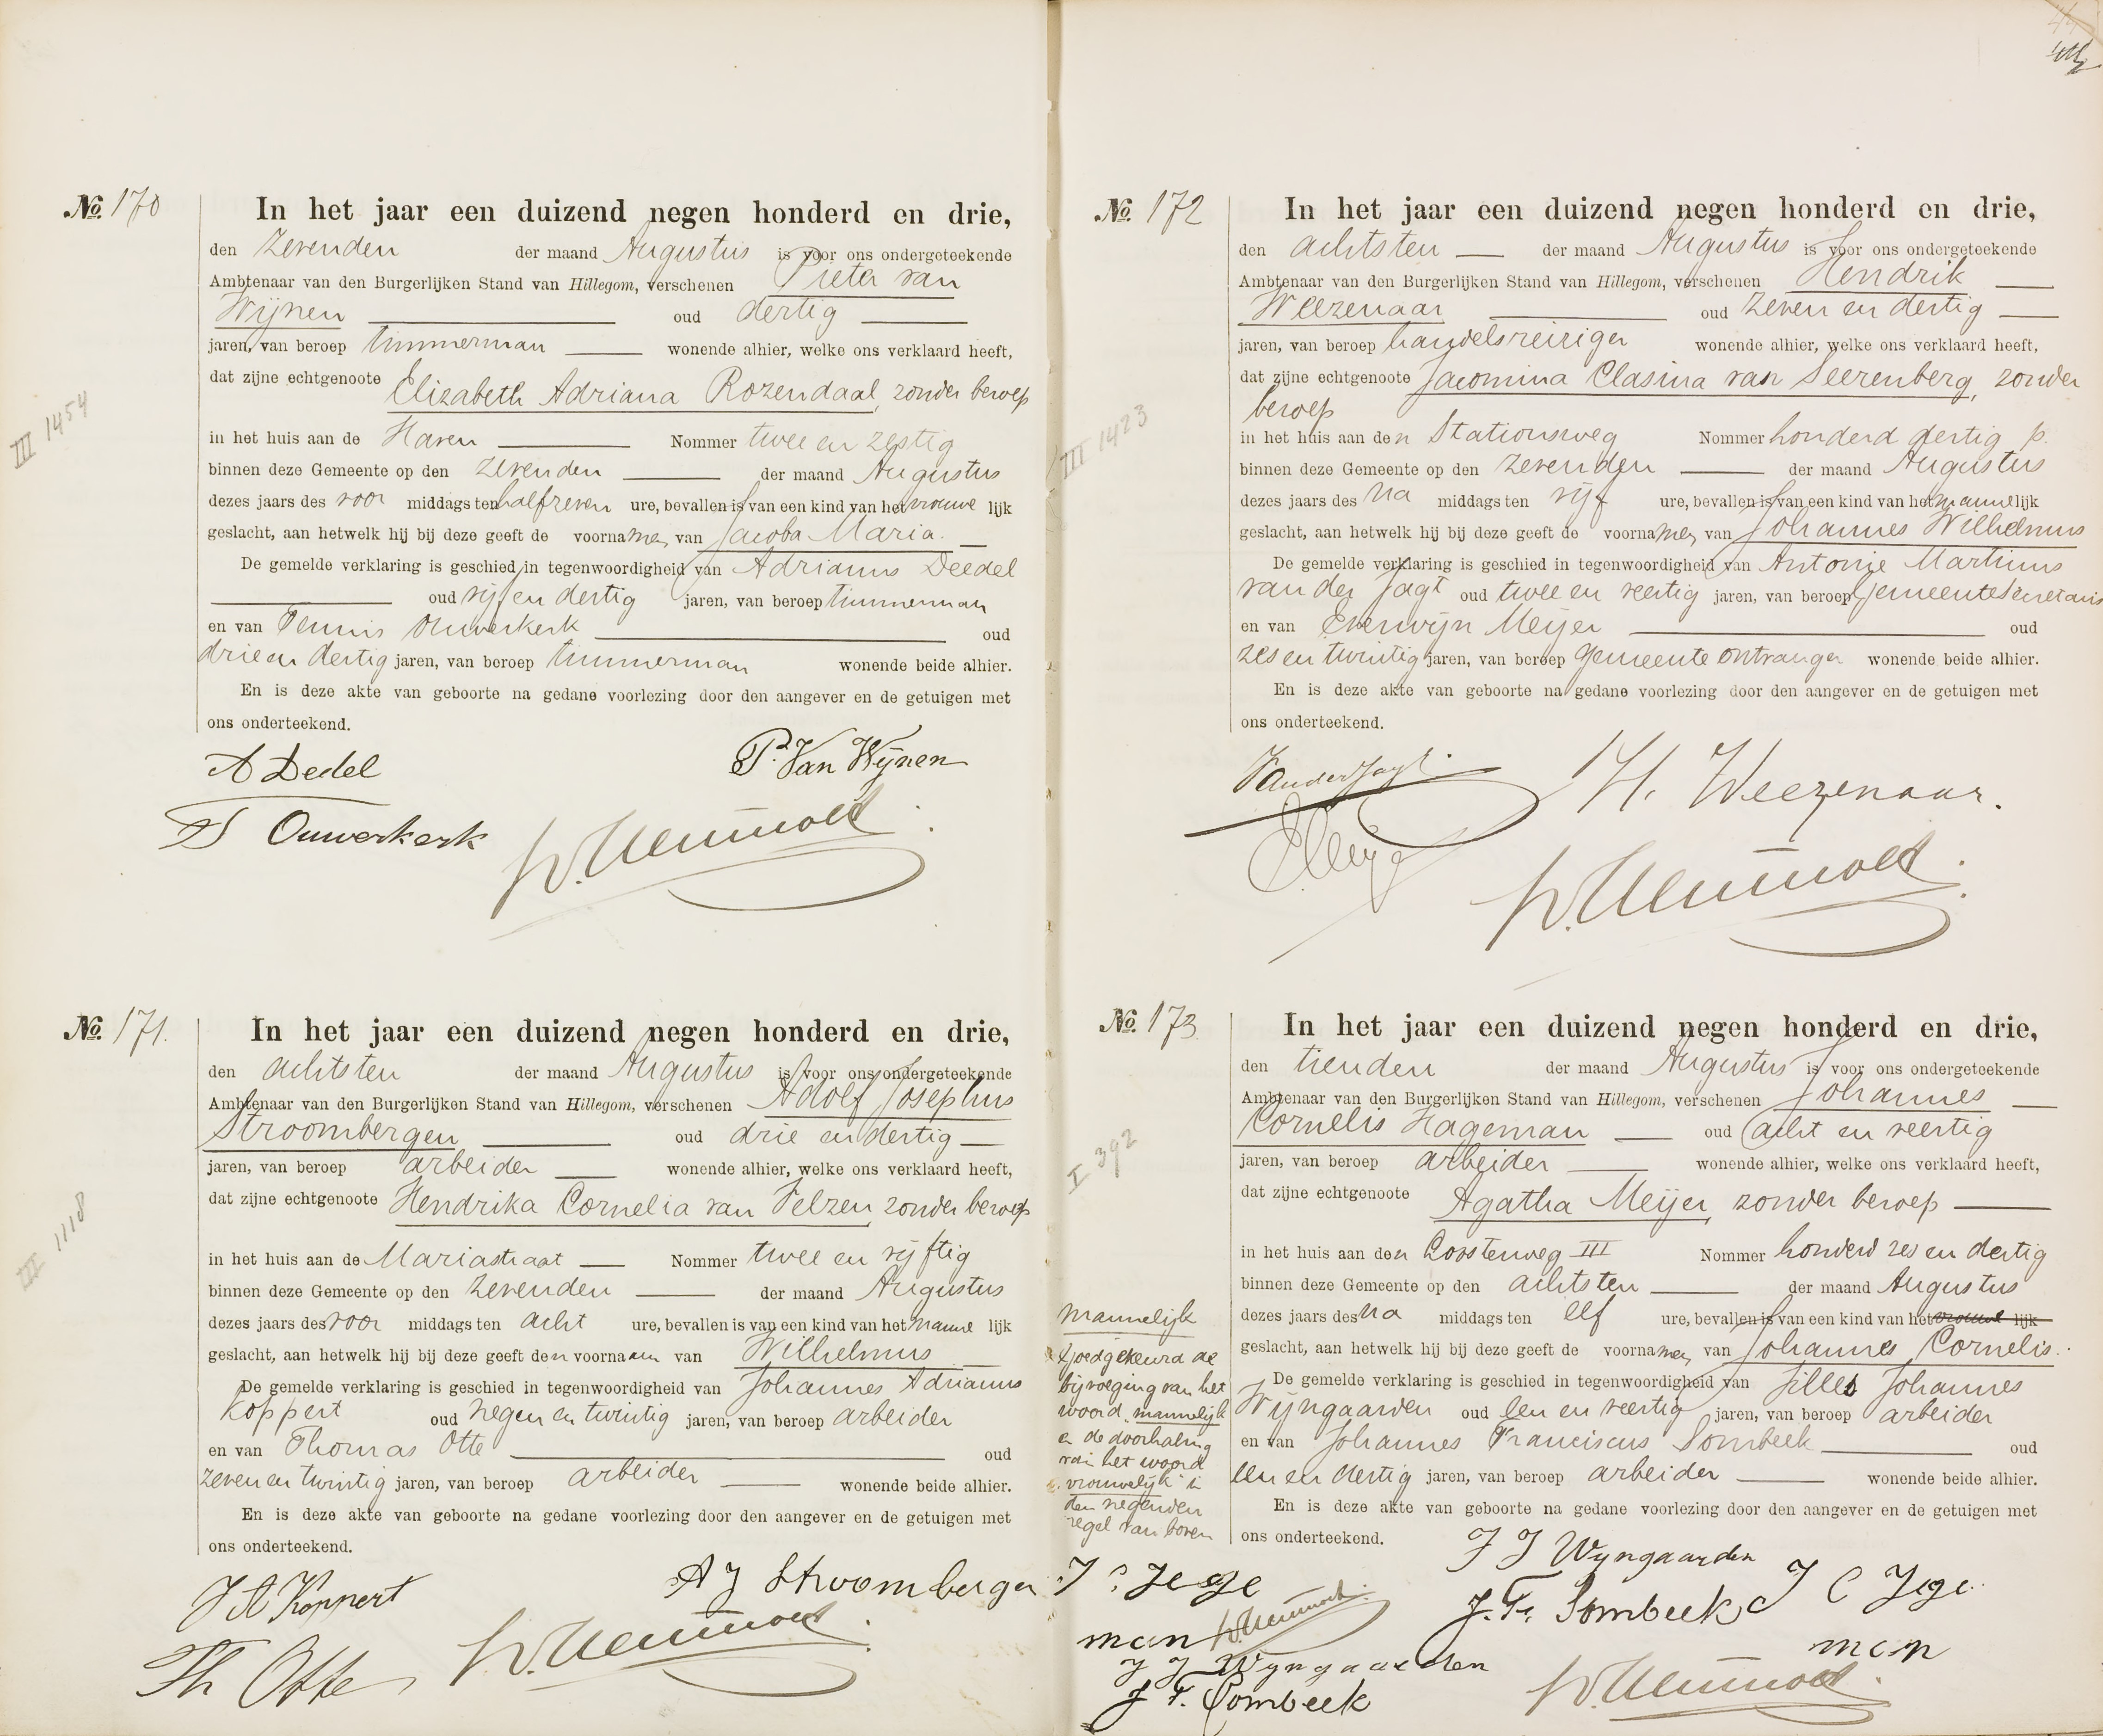 № 170
In het jaar een duizend negen honderd en drie,
den zevenden der maand Augustus is voor ons ondergeteekende
Ambtenaar van den Burgerlijken Stand van Hillegom, verschenen Pieter van
Wijnen oud dertig
jaren, van beroep timmerman wonende alhier, welke ons verklaard heeft,
dat zijne echtgenoote Elizabeth Adriana Rozendaal, zonder beroep
III 1454
in het huis aan de Haven Nommer twee en zestig
binnen deze Gemeente op den zevenden der maand Augustus
dezes jaars des voor middags ten half zeven ure, bevallen is van een kind van het vrouwe lijk
geslacht, aan hetwelk hij bij deze geeft de voornamen van Jacoba Maria.
De gemelde verklaring is geschied in tegenwoordigheid van Adrianus Deedel
oud vijf en dertig jaren, van beroep timmerman
en van Teunis Ouwerkerk oud
drie en dertig jaren, van beroep timmerman wonende beide alhier.
En is deze akte van geboorte na gedane voorlezing door den aangever en de getuigen met
ons onderteekend.
A Dedel P. Van Wijnen
T Ouwerkerk
№ 171.
In het jaar een duizend negen honderd en drie,
den achtsten der maand Augustus is voor ons ondergeteekende
Ambtenaar van den Burgerlijken Stand van Hillegom, verschenen Adolf Josephus
Stroombergen oud drie en dertig
jaren, van beroep arbeider wonende alhier, welke ons verklaard heeft,
dat zijne echtgenoote Hendrika Cornelia van Velzen, zonder beroep
III 1118
in het huis aan de Mariastraat Nommer twee en vijftig
binnen deze Gemeente op den zevenden der maand Augustus
dezes jaars des voor middags ten acht ure, bevallen is van een kind van het manne lijk
geslacht, aan hetwelk hij bij deze geeft den voornaam van Wilhelmus
De gemelde verklaring is geschied in tegenwoordigheid van Johannes Adrianus
Koppert oud negen en twintig jaren, van beroep arbeider
en van Thomas Otte oud
zeven en twintig jaren, van beroep arbeider wonende beide alhier.
En is deze akte van geboorte na gedane voorlezing door den aangever en de getuigen met
ons onderteekend.
J A Koppert A J Stroombergen
Th Otte
№ 172
In het jaar een duizend negen honderd en drie,
den achtsten der maand Augustus is voor ons ondergeteekende
Ambtenaar van den Burgerlijken Stand van Hillegom, verschenen Hendrik
Weezenaar oud zeven en dertig
jaren, van beroep handelsreiziger wonende alhier, welke ons verklaard heeft,
dat zijne echtgenoote Jacomina Clasina van Seerenberg, zonder
beroep
III 1423
in het huis aan den Stationsweg Nommer honderd dertig p.
binnen deze Gemeente op den zevenden der maand Augustus
dezes jaars des na middags ten vijf ure, bevallen is van een kind van het mannelijk
geslacht, aan hetwelk hij bij deze geeft de voornamen van Johannes Wilhelmus
De gemelde verklaring is geschied in tegenwoordigheid van Antonie Martinus
van der Jagt oud twee en veertig jaren, van beroep Gemeentesecretaris
en van Everwijn Meijer oud
zes en twintig jaren, van beroep gemeente ontvanger wonende beide alhier.
En is deze akte van geboorte na gedane voorlezing door den aangever en de getuigen met
ons onderteekend.
Vanderjagt. H. Weezenaar.
EMeijer
№ 173
In het jaar een duizend negen honderd en drie,
den tienden der maand Augustus is voor ons ondergeteekende
Ambtenaar van den Burgerlijken Stand van Hillegom, verschenen Johannes
Cornelis Hageman oud acht en veertig
jaren, van beroep arbeider wonende alhier, welke ons verklaard heeft,
dat zijne echtgenoote Agatha Meijer, zonder beroep
I 392
in het huis aan den Loosterweg III Nommer honderd zes en dertig
binnen deze Gemeente op den achtsten der maand Augustus
dezes jaars des na middags ten elf ure, bevallen is van een kind van het vrouwe lijk
geslacht, aan hetwelk hij bij deze geeft de voornamen van Johannes Cornelis.
De gemelde verklaring is geschied in tegenwoordigheid van Jilles Johannes
Wijngaarden oud een en veertig jaren, van beroep arbeider
en van Johannes Franciscus Sombeek oud
een en dertig jaren, van beroep arbeider wonende beide alhier.
En is deze akte van geboorte na gedane voorlezing door den aangever en de getuigen met
ons onderteekend.
mannelijk
Goedgekeurd de
bijvoeging van het
woord "mannelijk
en de doorhaling
van het woord
"vrouwelijk" in
den negenden
regel van boven
J J Wyngaarden
J. Fr. Sombeek
man
man
J J Wyngaarden
J F. Sombeek